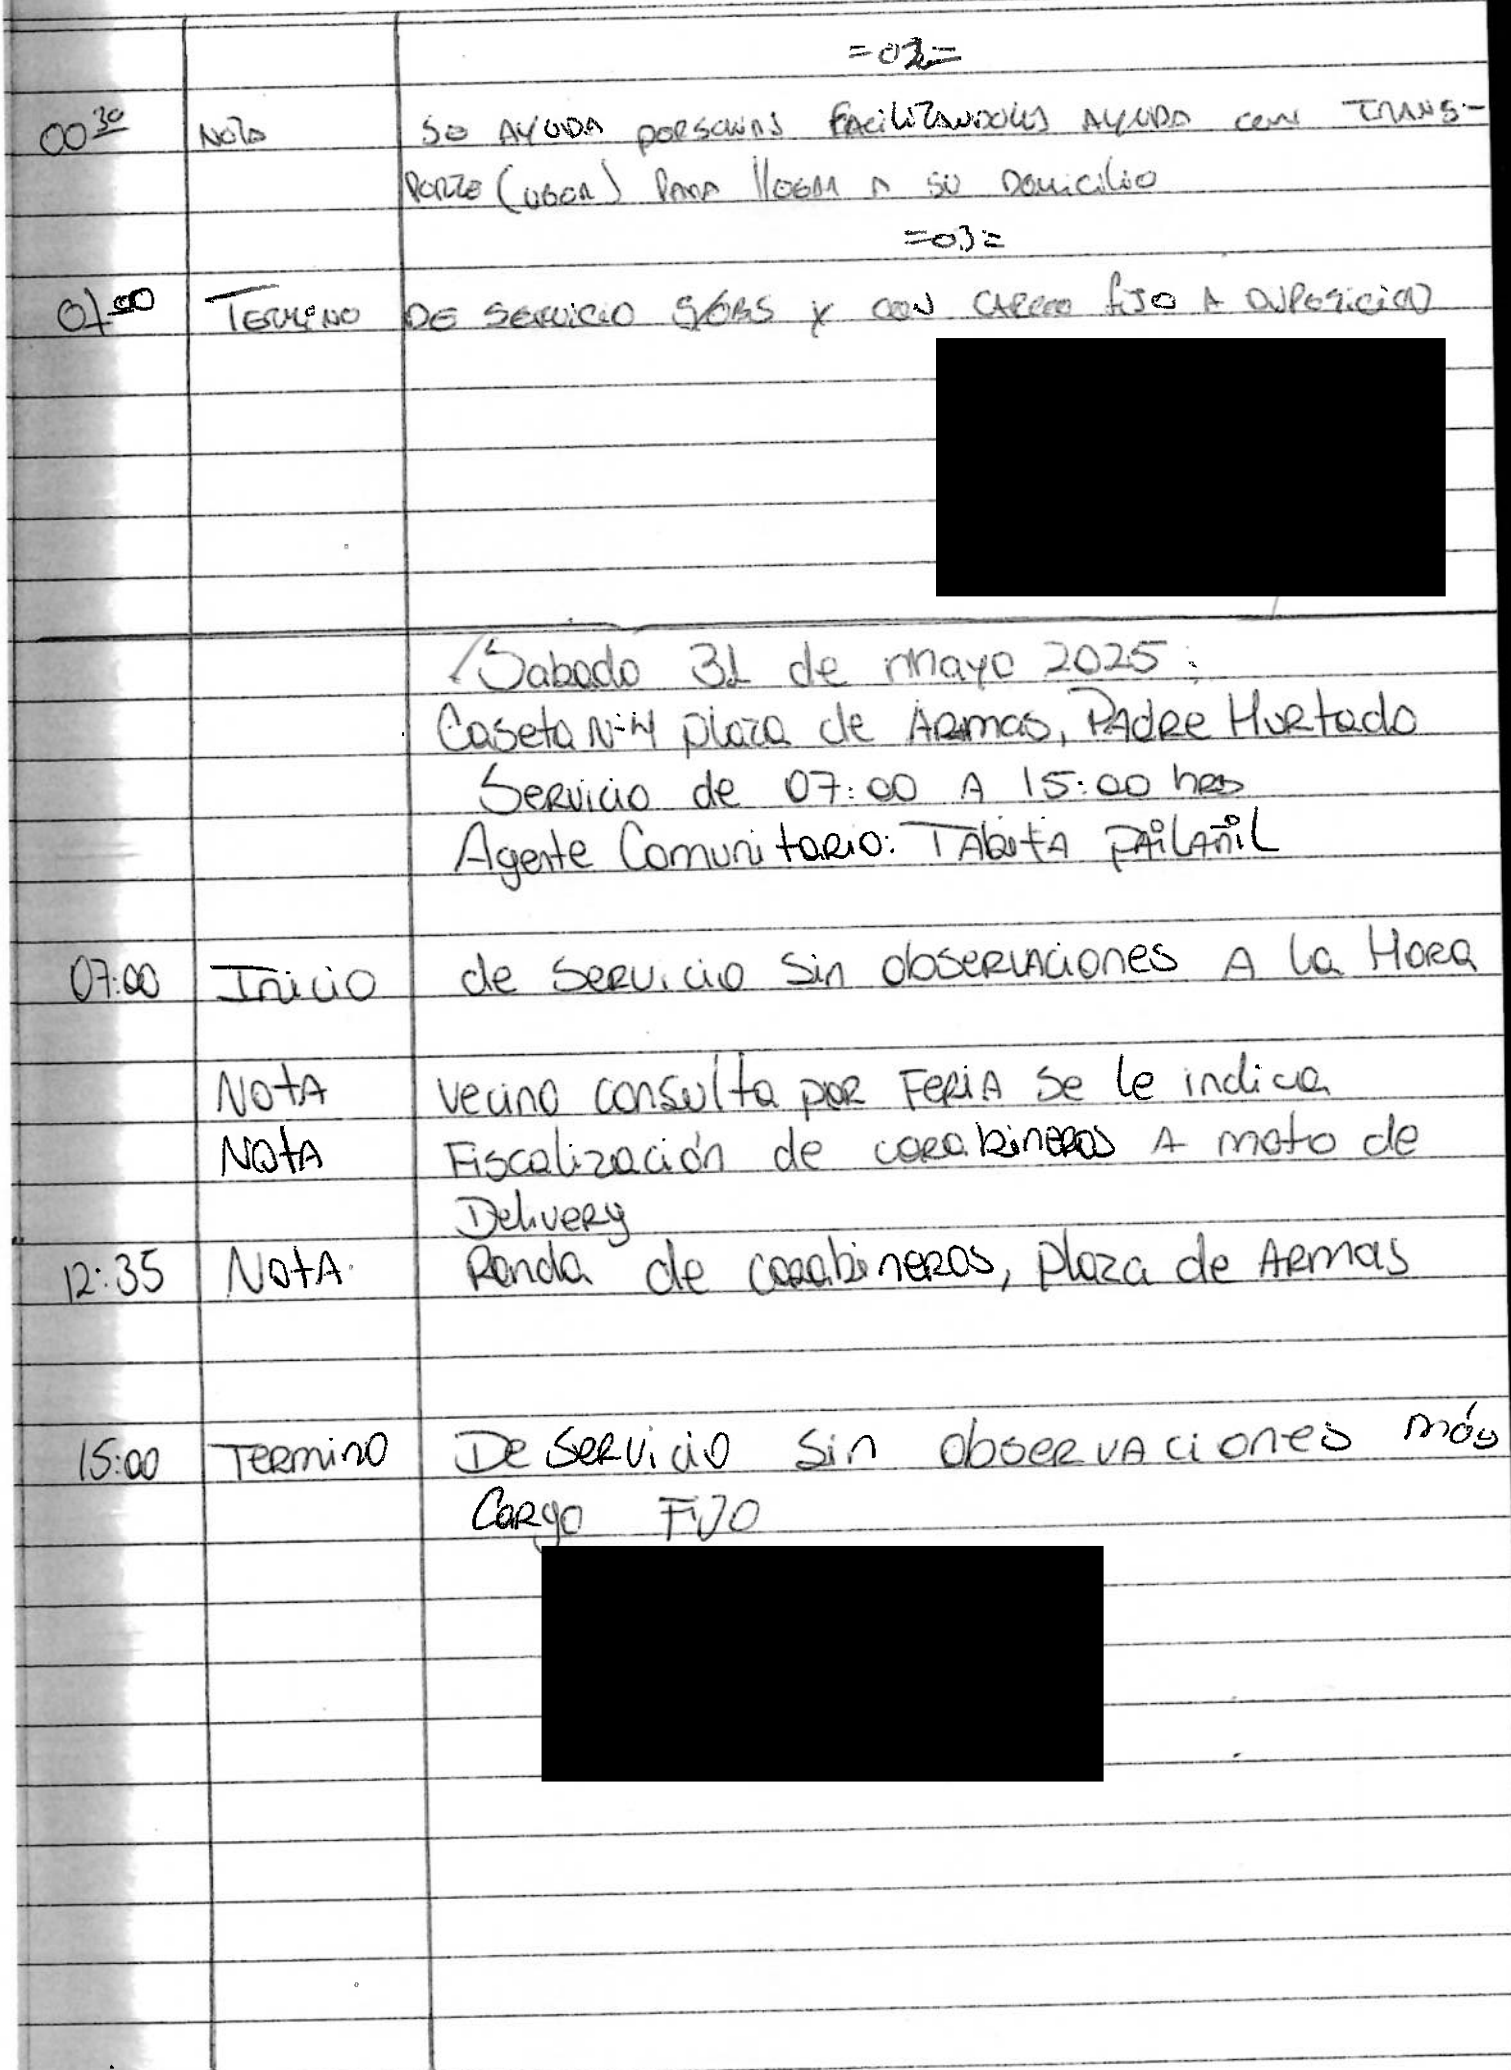 =02=
00 30 Nota Se AYUDA personas FACILITANDOLES AYUDA con TRANS-
PORTE (UBER) PARA llegar A su Domicilio
=03=
07 00 Termino DE SERVICIO S/OBS y con CARGO fijo A DISPOSICION
Sabado 31 de mayo 2025.
Caseta N-4 plaza de ARMAS, PADRE HURTADO
Servicio de 07:00 A 15:00 hrs
Agente Comunitario: TAbitA PAilAñiL
07:00 Inicio de Servicio Sin observaciones A la Hora
NotA vecino consulta por FERIA se le indica
NotA Fiscalización de carabineros A moto de
Delivery
12:35 NotA. Ronda de carabineros, plaza de Armas
15:00 Termino De Servicio Sin observaciones más
Cargo FIJO